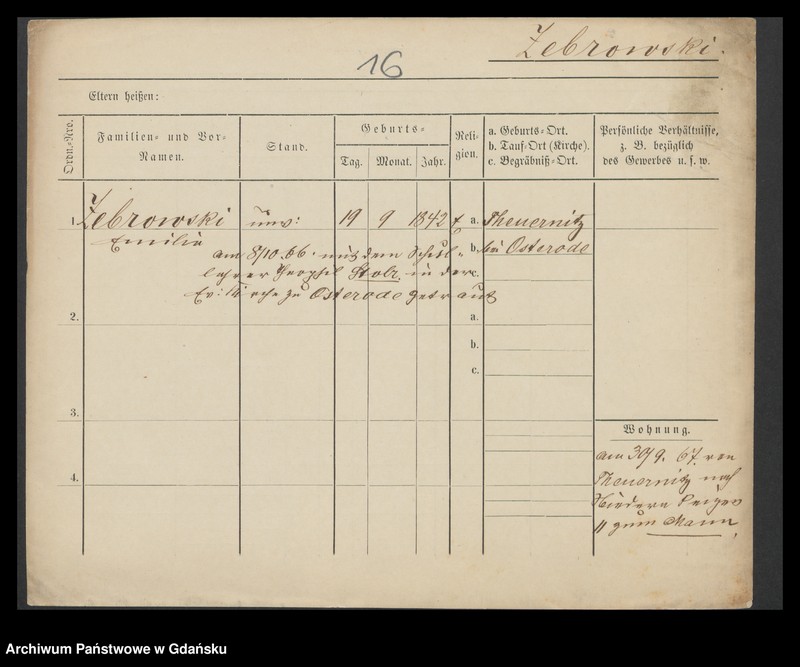 Zebrowski.
16
Eltern heißen:
Ordn.-Nro.
Familien- und Vor-
Namen.
Stand.
Geburts-
Tag.
Monat.
Jahr.
Reli-
gion.
a. Geburts-Ort.
b. Tauf-Ort (Kirche).
c. Begräbniß-Ort.
Persönliche Verhältnisse,
z. B. bezüglich
des Gewerbes u. s. w.
1. Zebrowski 19 9 1842 a. Theuernitz
Emilie b. bei Osterode
am 8/10. 66. mit dem Schul-
lehrer Theophil Stolz in der c.
Ev: Kirche zu Osterode getraut
2.
a.
b.
c.
3.
4.
Wohnung.
am 30/9. 67. von
Theuernitz nach
Niedern
zum Mann,